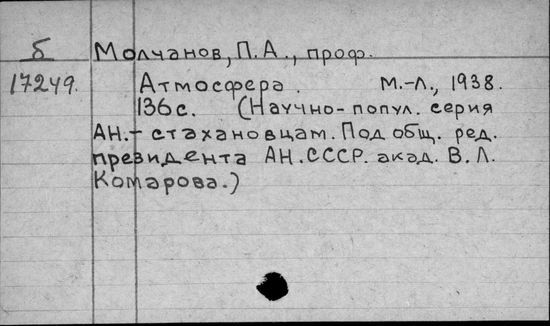 Б Молчанов, П.А., проф.
17249. Атмосфера. М.-Л., 1938.
136с. (Научно-попул. серия
АН.- стахановцам. Под общ. ред.
президента АН.СССР. акад. В.Л.
Комарова.)